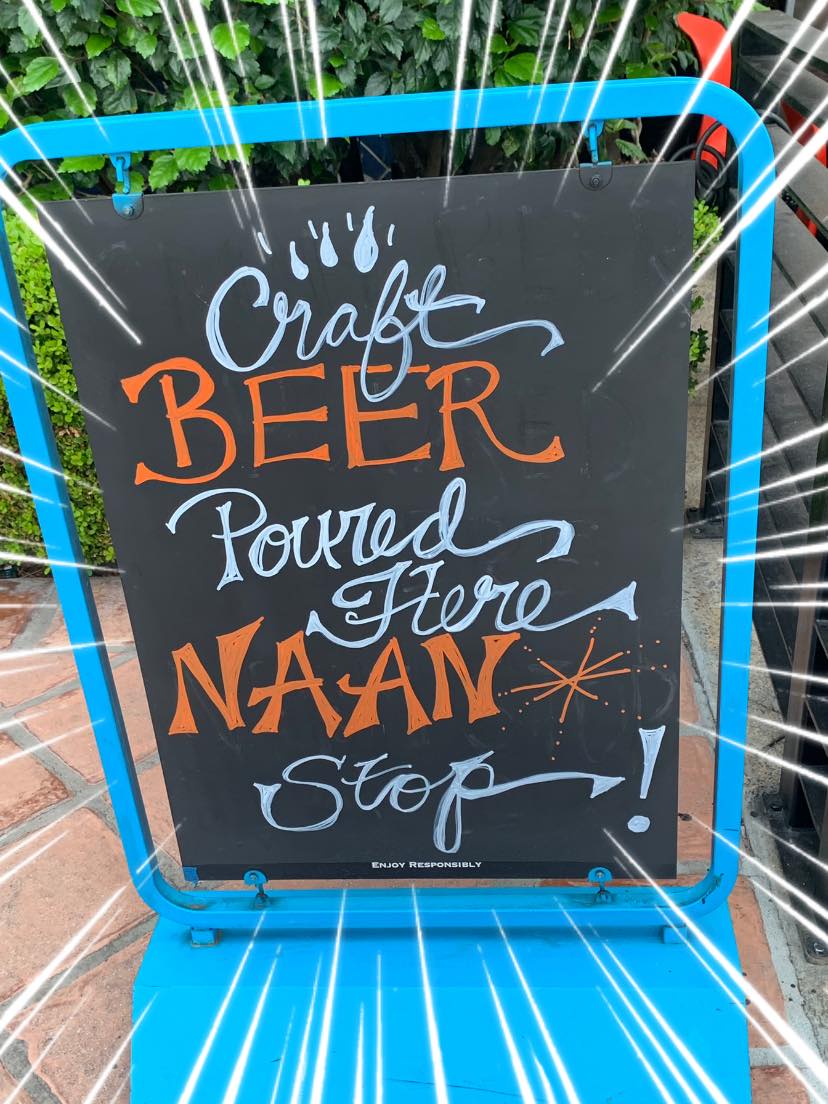 Craft
BEER
Poured
Here
NAAN
Stop!
ENJOY RESPONSIBLY